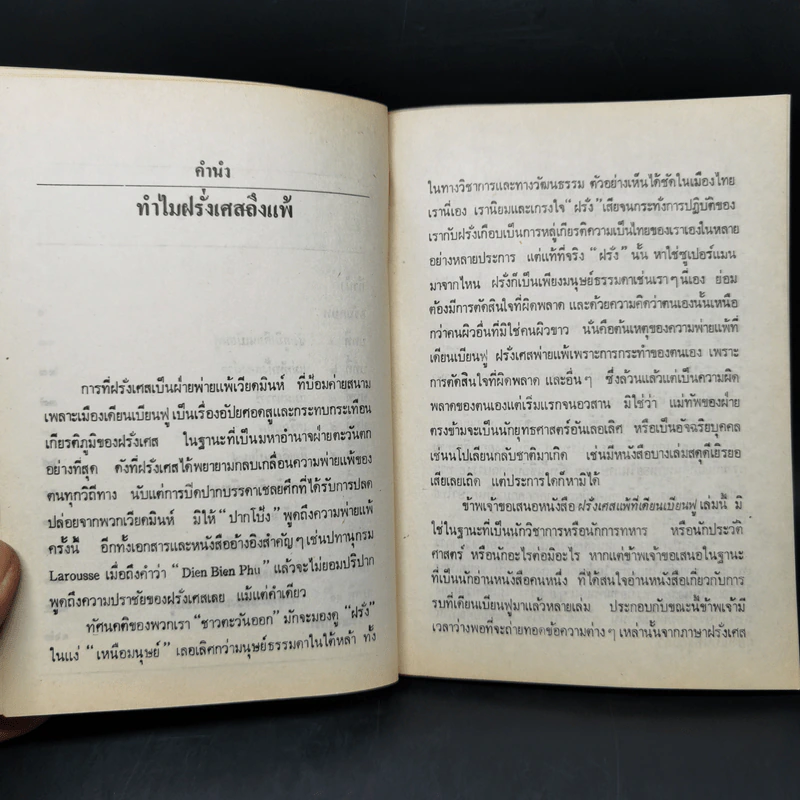 คำนำ
ทำไมฝรั่งเศสถึงแพ้
การที่ฝรั่งเศสเป็นฝ่ายพ่ายแพ้เวียดมินห์ ที่ป้อมค่ายสนาม
เพลาะเมืองเดียนเบียนฟู เป็นเรื่องอัปยศอดสูและกระทบกระเทือน
เกียรติภูมิของฝรั่งเศส ในฐานะที่เป็นมหาอำนาจฝ่ายตะวันตก
อย่างที่สุด ดังที่ฝรั่งเศสได้พยายามกลบเกลื่อนความพ่ายแพ้ของ
ตนทุกวิถีทาง นับแต่การปิดปากบรรดาเชลยศึกที่ได้รับการปลด
ปล่อยจากพวกเวียดมินห์ มิให้ “ปากโป้ง” พูดถึงความพ่ายแพ้
ครั้งนี้ อีกทั้งเอกสารและหนังสืออ้างอิงสำคัญๆ เช่นปทานุกรม
Larousse เมื่อถึงคำว่า “Dien Bien Phu” แล้วจะไม่ยอมปริปาก
พูดถึงความปราชัยของฝรั่งเศสเลย แม้แต่คำเดียว
ทัศนคติของพวกเรา “ชาวตะวันออก” มักจะมองดู “ฝรั่ง”
ในแง่ “เหนือมนุษย์” เลอเลิศกว่ามนุษย์ธรรมดาในใต้หล้า ทั้ง
ในทางวิชาการและทางวัฒนธรรม ตัวอย่างเห็นได้ชัดในเมืองไทย
เรานี่เอง เรานิยมและเกรงใจ “ฝรั่ง” เสียจนกระทั่งการปฏิบัติของ
เรากับฝรั่งเกือบเป็นการหลู่เกียรติความเป็นไทยของเราเองในหลาย
อย่างหลายประการ แต่แท้ที่จริง “ฝรั่ง” นั้น หาใช่ซูเปอร์แมน
มาจากไหน ฝรั่งก็เป็นเพียงมนุษย์ธรรมดาเช่นเราๆ นี่เอง ย่อม
ต้องมีการตัดสินใจที่ผิดพลาด และด้วยความคิดว่าตนเองนั้นเหนือ
กว่าคนผิวอื่นที่มิใช่คนผิวขาว นั่นคือต้นเหตุของความพ่ายแพ้ที่
เดียนเบียนฟู ฝรั่งเศสพ่ายแพ้เพราะการกระทำของตนเอง เพราะ
การตัดสินใจที่ผิดพลาด และอื่นๆ ซึ่งล้วนแล้วแต่เป็นความผิด
พลาดของตนเองแต่เริ่มแรกจนอวสาน มิใช่ว่า แม่ทัพของฝ่าย
ตรงข้ามจะเป็นนักยุทธศาสตร์อันเลอเลิศ หรือเป็นอัจฉริยบุคคล
เช่นนโปเลียนกลับชาติมาเกิด เช่นมีหนังสือบางเล่มสดุดีเยิรยอ
เสียเลยเถิด แต่ประการใดก็หามิได้
ข้าพเจ้าขอเสนอหนังสือ ฝรั่งเศสแพ้ที่เดียนเบียนฟู เล่มนี้ มิ
ใช่ในฐานะที่เป็นนักวิชาการหรือนักการทหาร หรือนักประวัติ
ศาสตร์ หรือนักอะไรต่อมิอะไร หากแต่ข้าพเจ้าขอเสนอในฐานะ
ที่เป็นนักอ่านหนังสือคนหนึ่ง ที่ได้สนใจอ่านหนังสือเกี่ยวกับการ
รบที่เดียนเบียนฟูมาแล้วหลายเล่ม ประกอบกับขณะนี้ข้าพเจ้ามี
เวลาว่างพอที่จะถ่ายทอดข้อความต่างๆ เหล่านั้นจากภาษาฝรั่งเศส